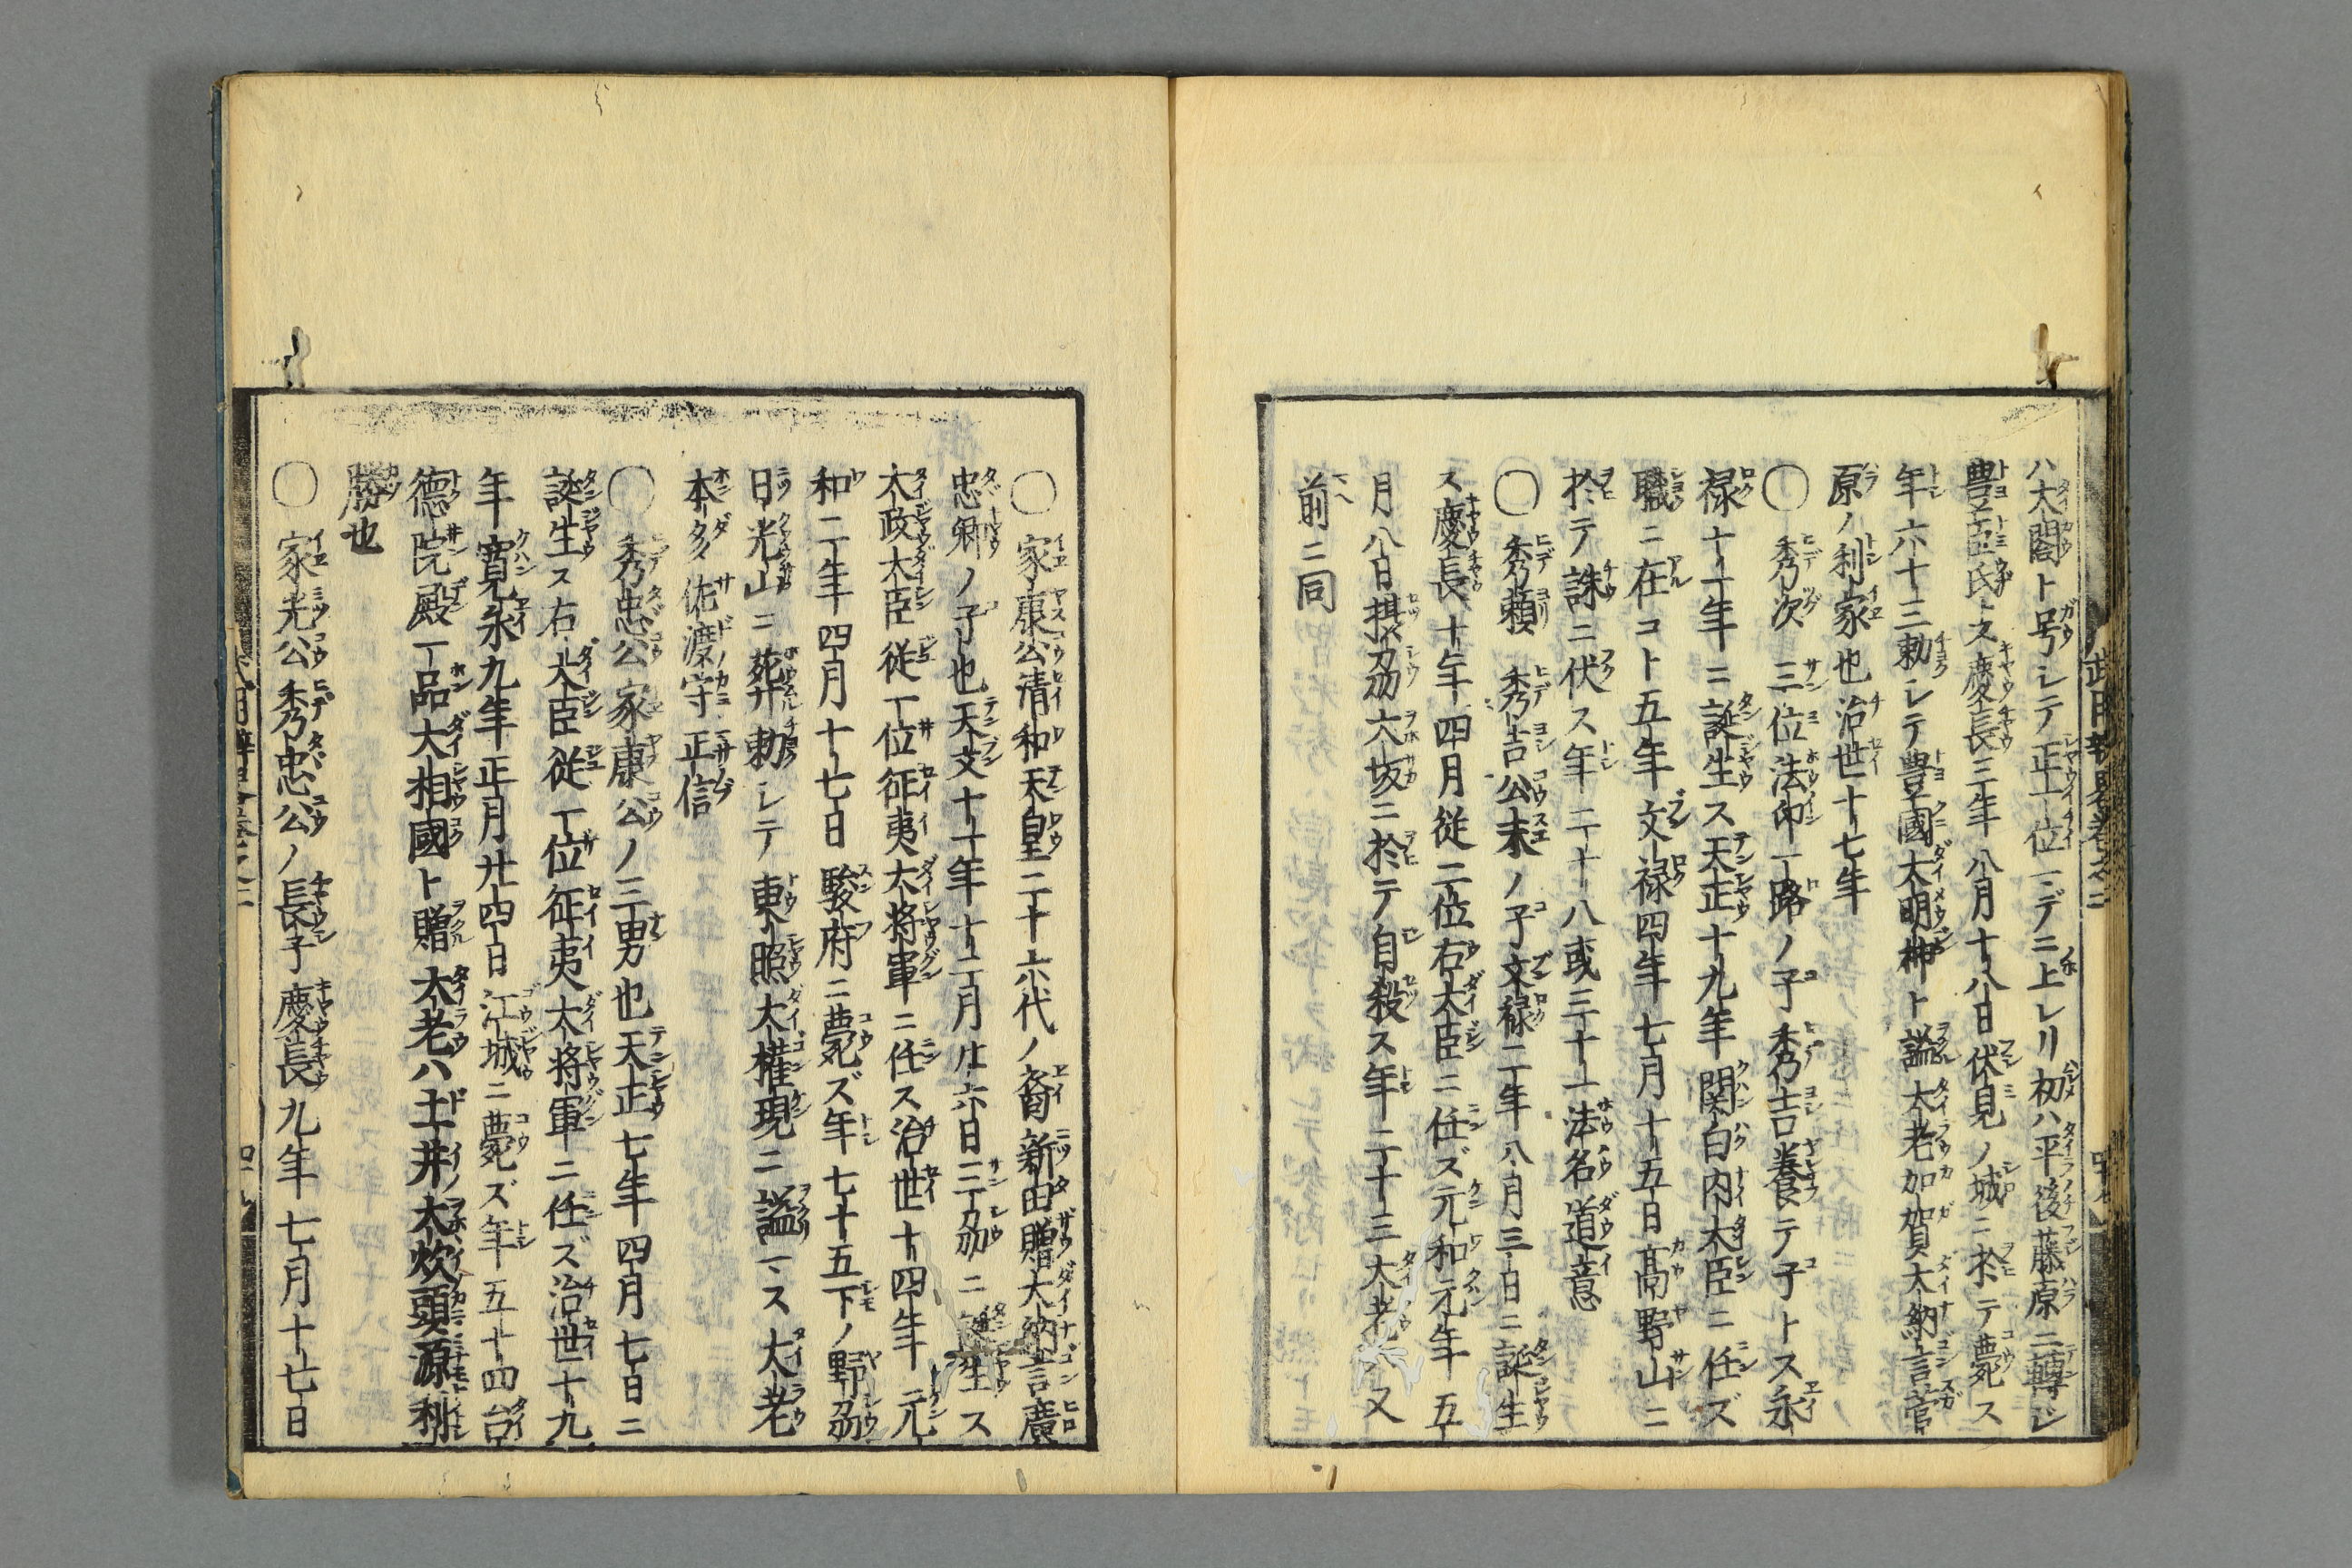 ハ大閤ト号シテ正一位マデニ上レリ初ハ平後藤原ニ轉ジ
豊臣氏ス慶長三年八月十八日伏見ノ城ニ於テ薨ス
年六十三勅シテ豊國大明神ト謚大老加賀大納言菅
原ノ利家也治世十七年
〇秀次三位法印一路ノ子秀吉養テ子トス永
禄十一年ニ誕生ス天正十九年関白内大臣ニ任ズ
職ニ在コト五年文禄四年七月十五日髙野山ニ
於テ誅ニ伏ス年二十八或三十一法名道意
〇秀頼秀吉公末ノ子文禄二年八月三日ニ誕生
ス慶長十年四月従二位右大臣ニ任ズ元和元年五
月八日摂刕大坂ニ於テ自殺ス年二十三大老又
前ニ同
〇家康公清和天皇二十六代ノ裔新田贈大納言廣
忠卿ノ子也天文十一年十二月廿六日三刕ニ誕生ス
太政大臣従一位征夷大将軍ニ任ス治世十四年元
和二年四月十七日駿府ニ薨ズ年七十五下ノ野刕
日光山ニ葬勅シテ東照大権現ニ謚マス大老
本多佐渡守正信
〇秀忠公家康公ノ三男也天正七年四月七日ニ
誕生ス右大臣従一位征夷大将軍ニ任ズ治世十九
年寛永九年正月廿四日江城ニ薨ズ年五十四台
德院殿一品大相國ト贈大老ハ土井大炊頭源利
勝也
〇家光公秀忠公ノ長子慶長九年七月十七日